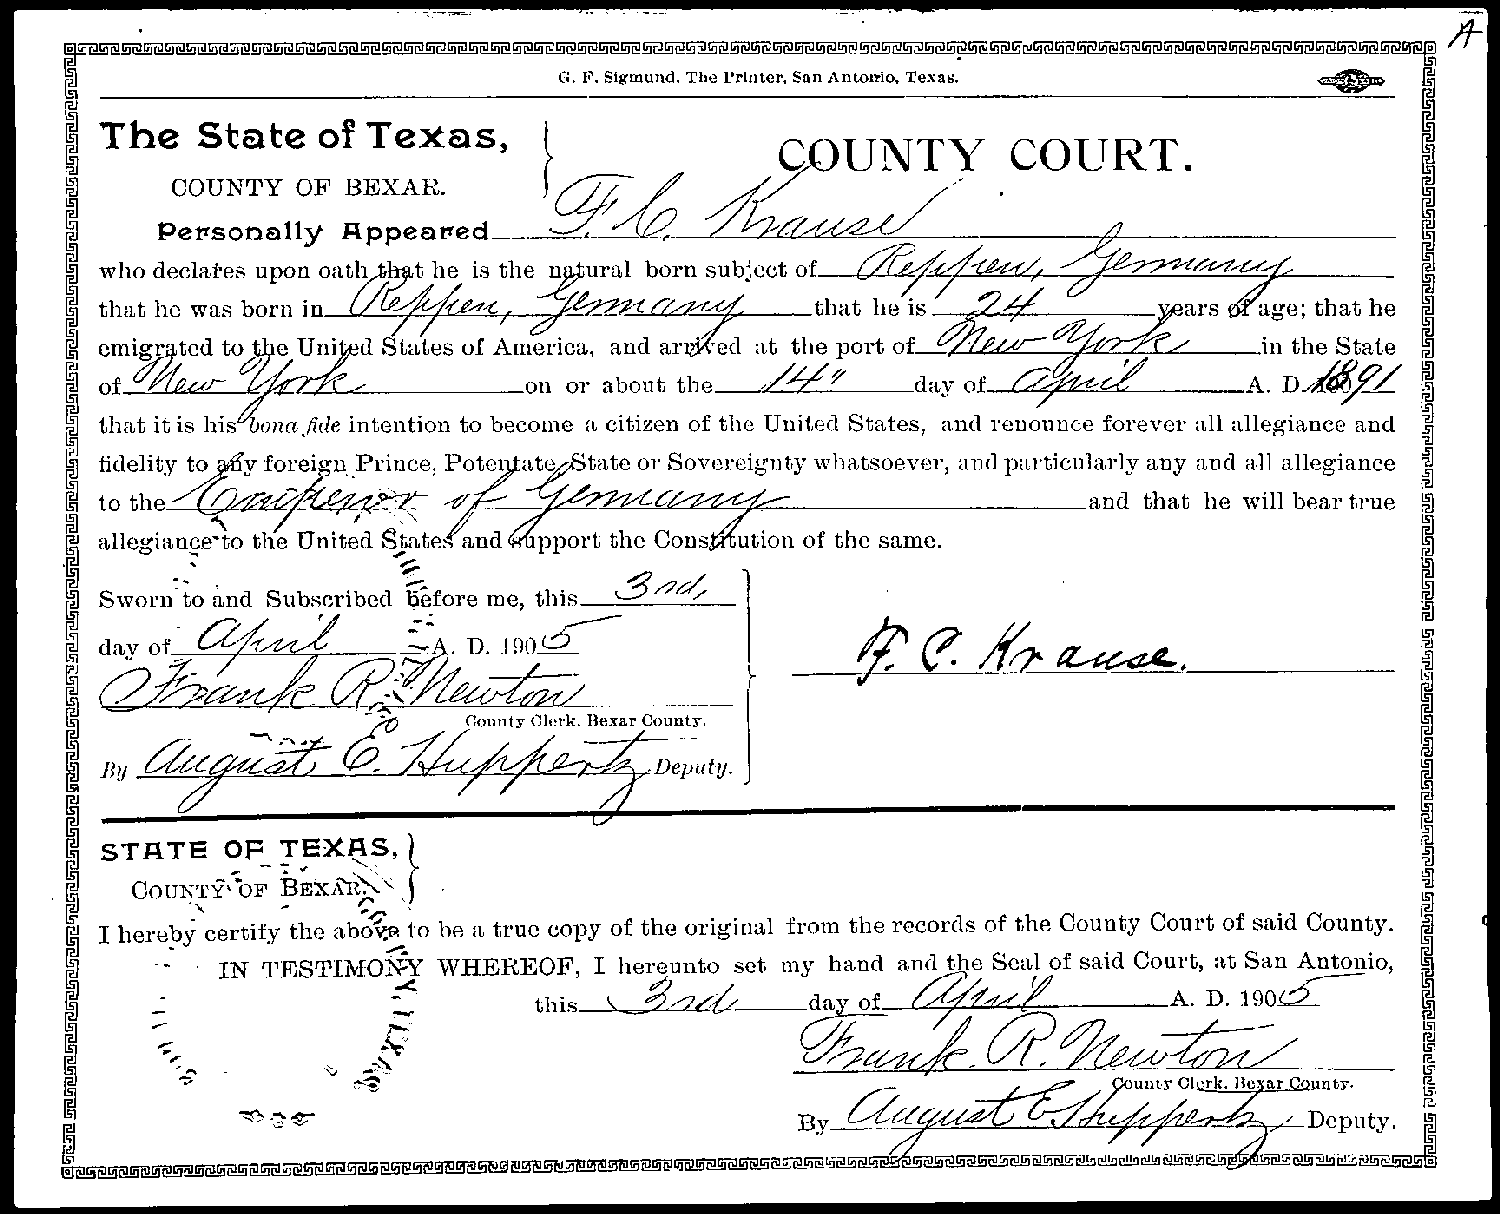 A
G. F. Sigmund, The Printer, San Antonio, Texas.
The State of Texas,
COUNTY OF BEXAR.
COUNTY COURT.
Personally Appeared F. C. Krause
who declares upon oath that he is the natural born subject of Reppen, Germany
that he was born in Reppen, Germany that he is 24 years of age; that he
emigrated to the United States of America, and arrived at the port of New York in the State
of New York on or about the 14" day of April A. D. 1891
that it is his bona fide intention to become a citizen of the United States, and renounce forever all allegiance and
fidelity to any foreign Prince, Potentate, State or Sovereignty whatsoever, and particularly any and all allegiance
to the Emperor of Germany and that he will bear true
allegiance to the United States and support the Constitution of the same.
Sworn to and Subscribed before me, this 3rd,
day of April A. D. 1905
F. C. Krause.
Frank R. Newton
County Clerk, Bexar County.
By August E. Huppertz Deputy.
STATE OF TEXAS,
COUNTY OF BEXAR.
I hereby certify the above to be a true copy of the original from the records of the County Court of said County.
IN TESTIMONY WHEREOF, I hereunto set my hand and the Seal of said Court, at San Antonio,
this 3rd day of April A. D. 1905
Frank R. Newton
County Clerk, Bexar County.
By August E. Huppertz Deputy.